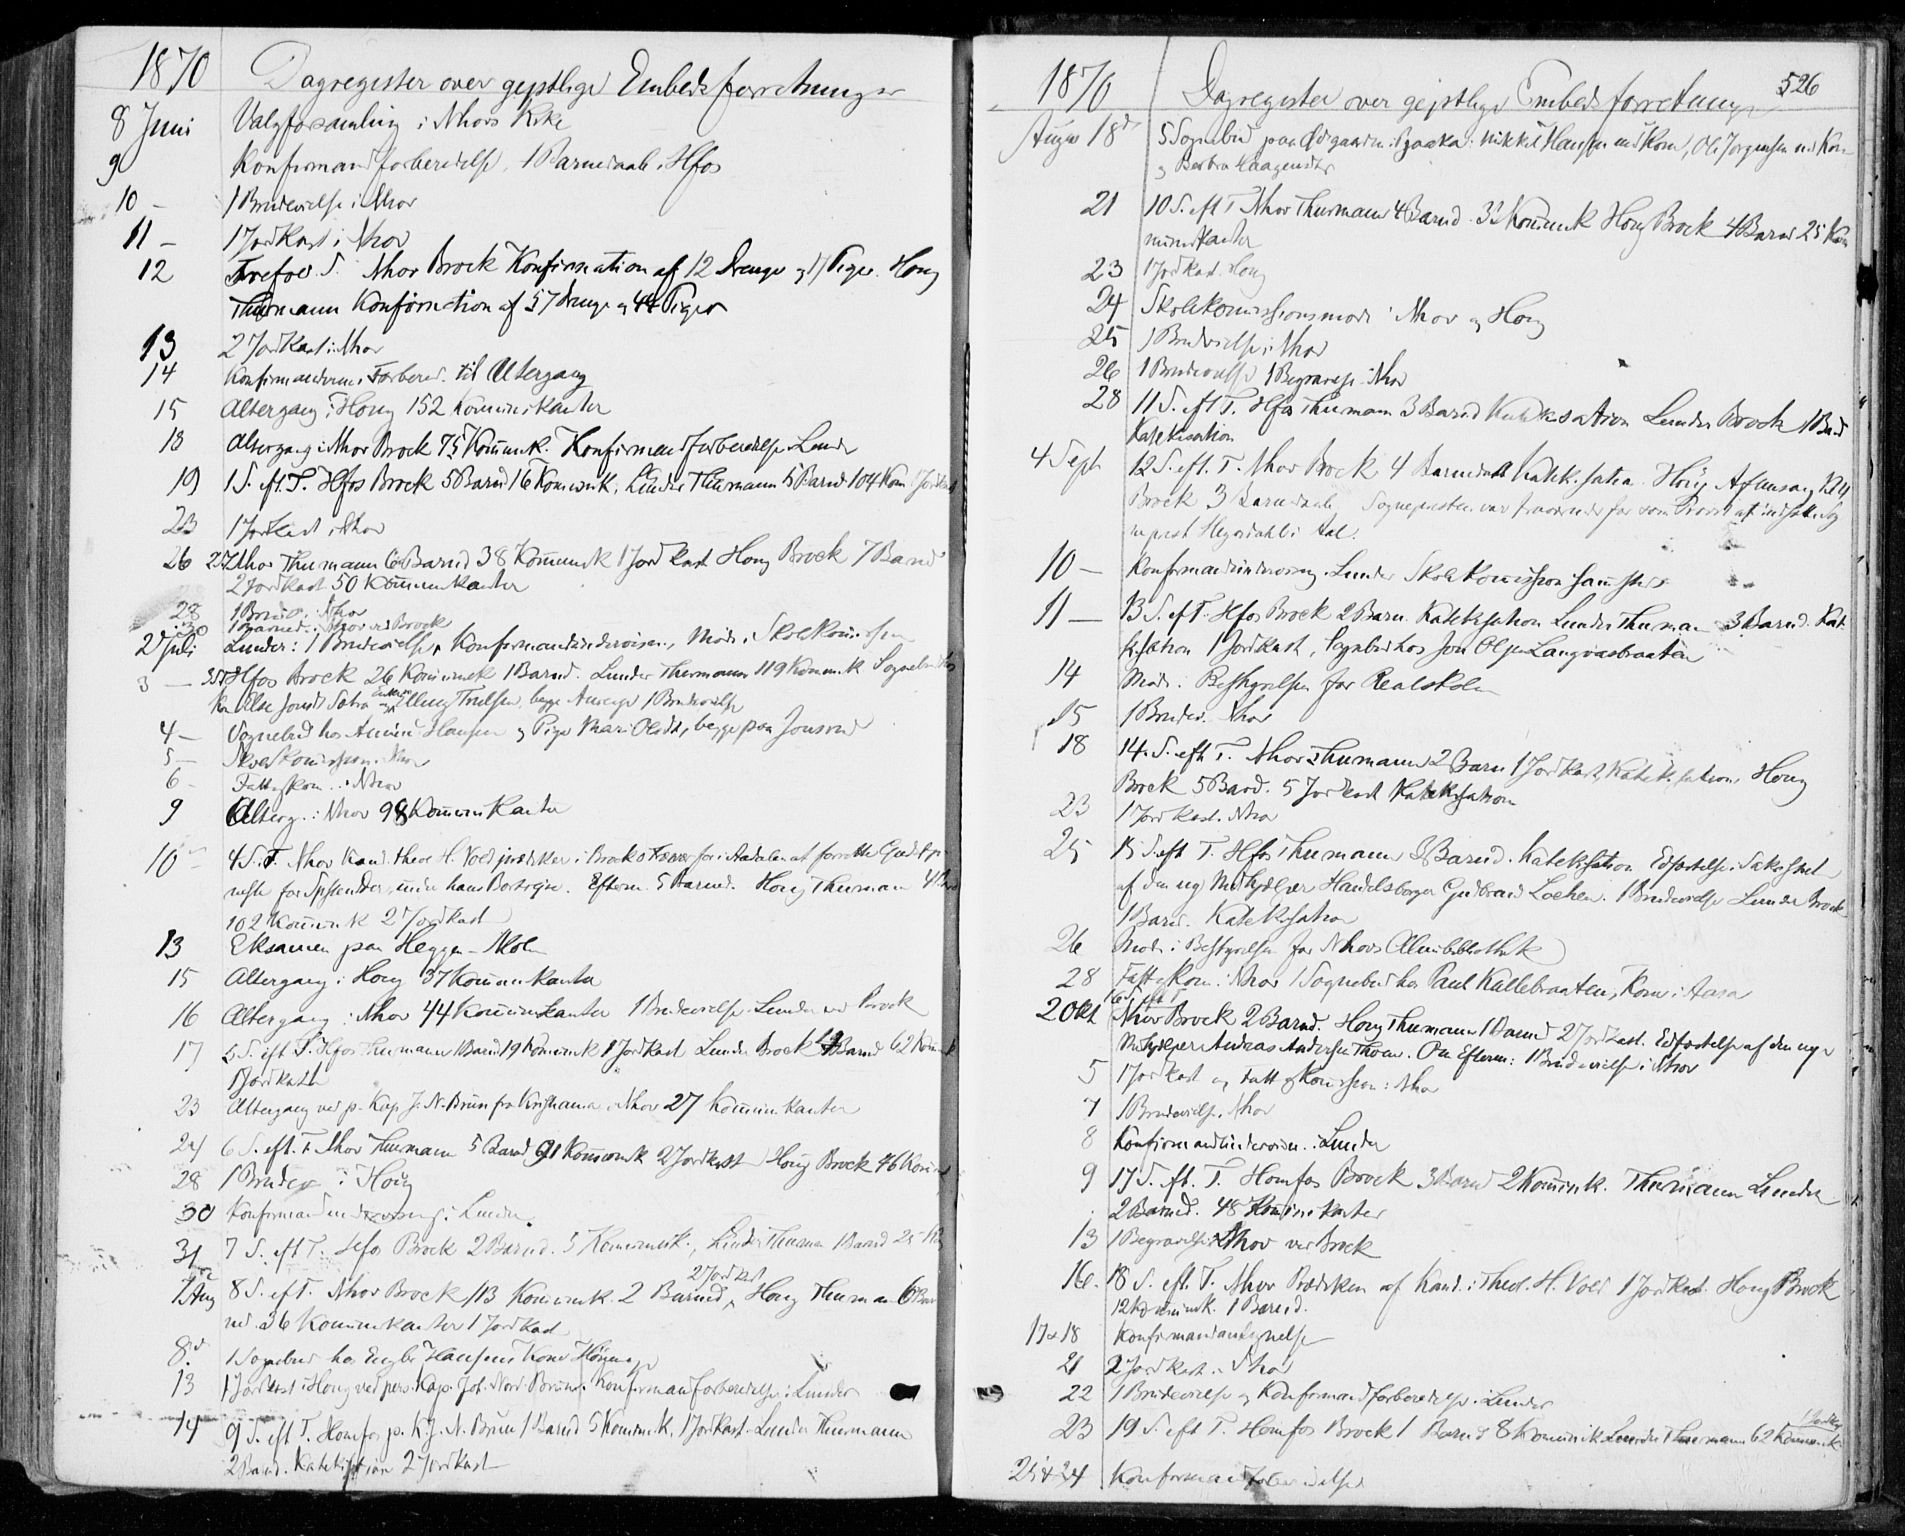 1870 Dagregister over gejstlige Embedsforretninger
8 Juni Valgforsamling i Nhovs Kirke
9 Konfirmandforberedelse, 1 Barnedaab i Hfos
10 – 1 Brudevielse i Nhov
11 – 1 Jordkast i Nhov
12 Trefol. S. Nhov Brock Konfirmation af 12 Drenge og 17 Piger. Houg
Thurmann Konfirmation af 57 Drenge og 44 Piger
13 2 Jordkast i Nhov
14 Konfirmanderne Forbered. til Altergang
15 Altergang i Houg 152 Kommunikanter
18 Altergang i Nhov Brock 75 Kommunk. Konfirmandforberedelse Lunder
19 1 S. eft. T. Hfos Brock 5 Barned 16 Kommunk, Lunder Thurmann 5 Barned 104 Kom 1 Jordkast
23 1 Jordkast i Nhov
26 2 S Nhov Thurmann 6 Barned 38 Kommunk 1 Jordkast Houg Brock 7 Barned
2 Jordkast 50 Kommunikanter
28 1 Brudev. i Nhov
30 1 Barned. i Nhov ved Brock
2 Juli Lunder: 1 Brudevielse, Konfirmandundervisn., Møde i Skolekommissionen
3 – 3 S T Hfos Brock 26 Kommunk 1 Barned. Lunder Thurmann 119 Kommunk Sognebud hos
Truelsen, begge 1 Brudevielse
4 – Sognebud hos Hansen og Pige Mari Olsdt, begge paa
5 – Skolekommission i Nhov
6 – Fattigkom. i Nhov
9 Alterg. i Nhov 98 Kommunikanter
10 – 4 S. T. Nhov Kand. theol H. Vold prædiker i Brocks i Aadalen at forrette Gudstje
neste for under hans Bortrejse. Efterm. 5 Barned. Houg Thurmann 4 Barned
102 Kommunk 2 Jordkast
13 Eksamen paa Heggen Skole
15 Altergang i Houg 37 Kommunikanter
16 Altergang i Nhov 44 Kommunikanter 1 Brudevielse Lunder ved Brock
17 5 S. eft T. Hfos Thurmann 1 Barned 19 Kommunk 1 Jordkast Lunder Brock Barned 62 Kommunk
1 Jordkast
23 Altergang ved p. Kap J. N. Brun fra Kristiania i Nhov 27 Kommunikanter
24 6 S. eft. T. Nhov Thurmann 5 Barned 91 Kommunk 2 Jordkast Houg Brock 46 Kommunk
28 1 Brudev i Houg
30 Konfirmandundervisning i Lunder.
31 7 S. eft T. Hfos Brock 2 Barned. 5 Kommunik., Lunder Thurman 1 Barned 25 Kom
2 Jordkast
7 Aug 8 S. eft. T. Nhov Brock 113 Kommunk. 2 Barned, Houg Thurman 6 Bar
ned 236 Kommunikanter 1 Jordkast
8d 1 Sognebud hos Engbr Hansens Kone
13 1 Jordkast i Houg ved pers. Kap. Joh. Nord. Brun. Konfirmandforberedelse i Lunder
14 9 S. eft T. Honefos p. K. J. N. Brun 1 Barned 5 Kommunk, 1 Jordkast. Lunder Thurmann
2 Barned. Katekisation 2 Jordkast
1870 Dagregister over gejstlige Embedsforretninger 526
August 18d 5 Sognebud paa Mikkel Hansen med Kone, Ole Jørgensen med Kone
og Barbra Haagensdtr
21 10 S. eft T Nhov Thurmann 4 Barned. 32 Kommunk Houg Brock 4 Barned 25 Kom
munikanter
23 1 Jordkast. Houg
24 Skolekommissionsmøde i Nhov og Houg
25 1 Brudevielse i Nhov
26 1 Brudevielse 1 Begravelse i Nhov
28 11 S. eft T. Hfos Thurmann 3 Barned Katekisation Lunder Brock 1 Barned
Katekisation
4 Sept 12 S. eft. T. Nhov Brock 4 Barnedaab Katekisation. Houg Aftensang Kl 4
Brock 3 Barnedaab. Sognepresten var fraværende for som Provst at indsætte Sog
neprest Hegerdahl i Aal.
10 – Konfirmandundervisng. Lunder Skolekommission sammesteds
11 – 13 S. eft T. Hfos Brock 2 Barn. Katekisation Lunder Thurman 3 Barned. Kate
kisation 1 Jordkast, Sognebud hos Jon Olsen Langvasbraaten
14 Møde i Bestyrelsen for Realskolen
15 1 Brudev. Nhov
18 14 S. eft T. Nhov Thurmann 2 Barn 1 Jordkast, Katekisation, Houg
Brock 5 Barned. 5 Jordkast Katekisation
23 1 Jordkast. Nhov
25 15 S. eft T. Hfos Thurmann 3 Barned. Katekisation Edfæstelse i Sakristiet
af den nye Medhjelper Handelsborger Gudbrand Lochen. 1 Brudevielse Lunder Brock
1 Barned. Katekisation
26 Møde i Bestyrelsen for Nhovs Almuebibliothek
28 Fattigkom. i Nhov 1 Sognebud hos Paul Kallebraatens Kone i Aasa
2 Okt 16 S. eft T. Nhov Brock 2 Barned. Houg Thurmann 1 Barned 2 Jordkast. Edfæstelse af den nye
Medhjelper Andreas Andersen Thoen. Om Efterm: 1 Brudevielse i Nhov
5 1 Jordkast og Fattigkommission i Nhov
7 1 Brudevielse. Nhov
8 Konfirmandundervisn. i Lunder
9 17 S. eft. T. Honefos Brock 3 Barned 2 Kommunk. Thurmann Lunder
2 Barned. 48 Kommunikanter
13 1 Begravelse i Nhov ved Brock
16. 18 S. eft. T. Nhov Prædiken af Kand. i Theol. H. Vold 1 Jordkast. Houg Brock
12 Kommunk. 1 Barned.
17 & 18 Konfirmandantegnelse
21 2 Jordkast. i Nhov
22 1 Brudevielse og Konfirmandforberedelse i Lunder
23 19 S. eft T. Honefos Brock 1 Barned 8 Kommunik Lunder Thurmann 62 Kommunk 1 Jordkast
25 & 24 Konfirmandforberedelse